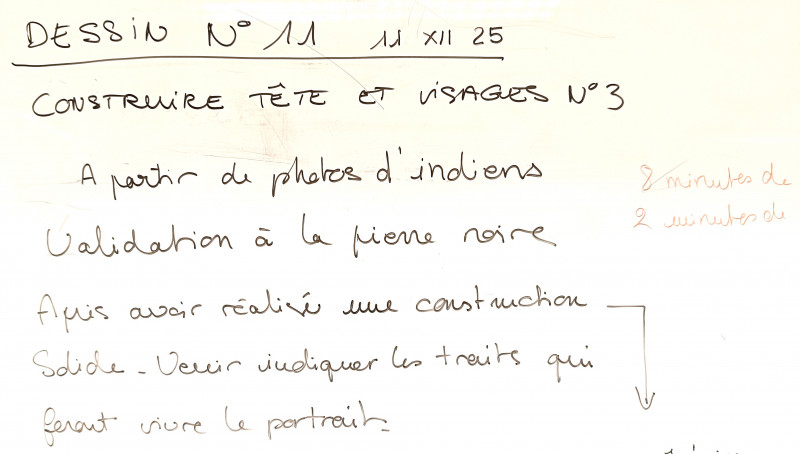 DESSIN N° 11 11 XII 25
CONSTRUIRE TÊTE ET VISAGES N° 3
A partir de photos d'indiens
8 minutes de
2 minutes de
Validation à la pierre noire
Apris avoir réalisé une construction
Solide - Venir indiquer les traits qui
feront vivre le portrait.